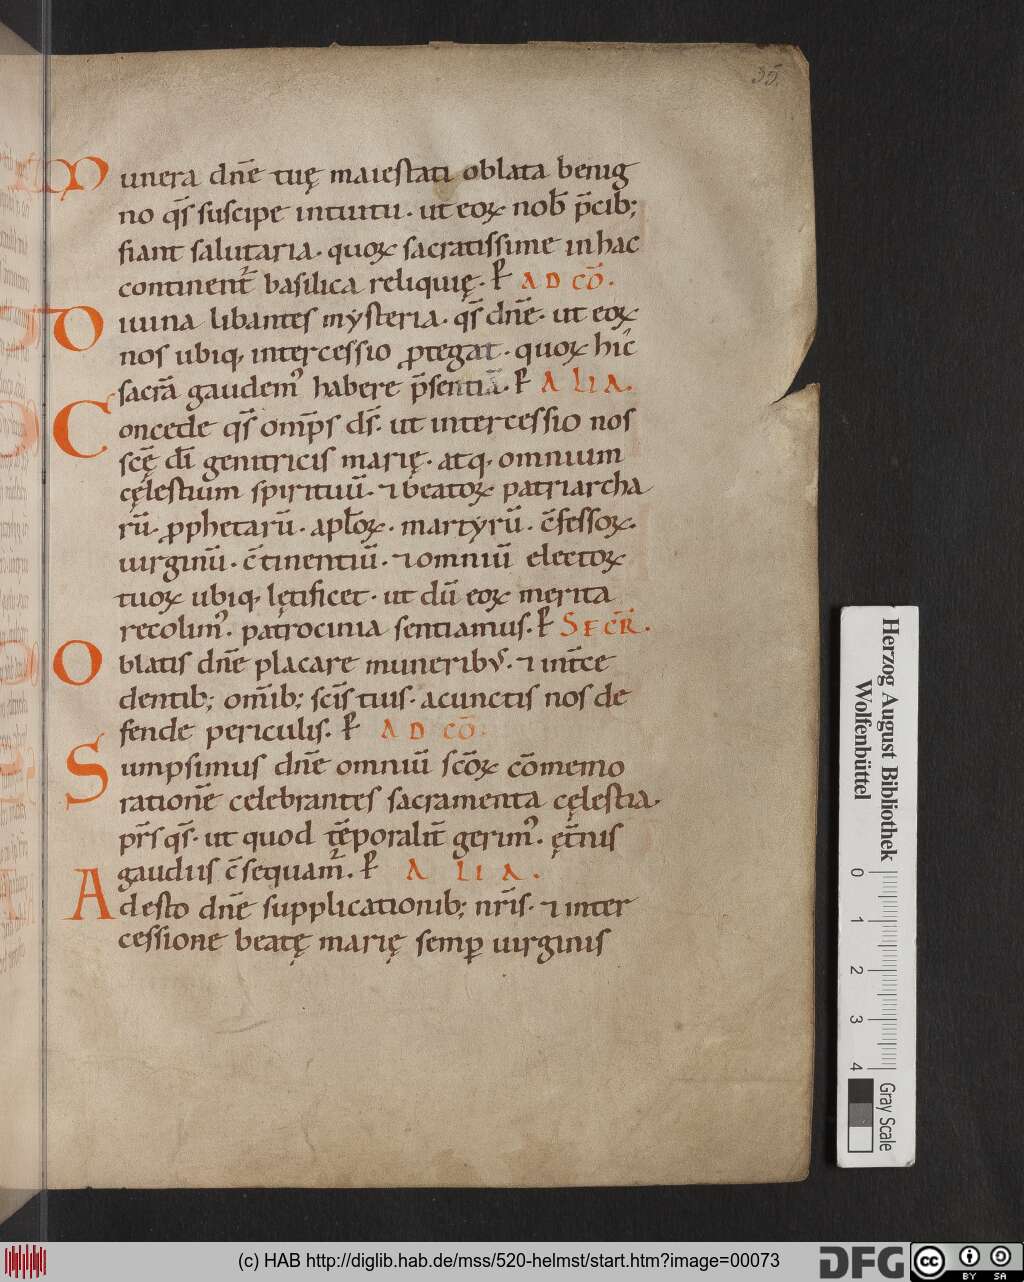 35.
Munera dn̄e tuę maiestati oblata benig
no qs̄ suscipe intuitu. ut eoꝝ nob̄ p̄cib;
fiant salutaria. quoꝝ sacratissime in hac
continent᷑ basilica reliquię. ꝑ AD CŌ.
Diuina libantes mẏsteria. qs̄ dn̄e. ut eoꝝ
nos ubiq, intercessio ꝓtegat. quoꝝ hic
sacrā gaudem᾿ habere p̄sentiā. ꝑ ALIA.
Concede qs̄ omp̄s ds̄. ut intercessio nos
scę̄ dī genitricis marię. atq, omnium
cęlestium spirituū. ⁊ beatoꝝ patriarcha
rū. ꝓphetarū. apl̄oꝝ. martyrū. c̄fessoꝝ.
uirginū. c̄tinentiū. ⁊ omniū electoꝝ
tuoꝝ ubiq, lętificet. ut dū eoꝝ merita
recolim᾿. patrocinia sentiamus. ꝑ SECR̄.
Oblatis dn̄e placare munerib᾿. ⁊ int̄ce
dentib; om̄ib; scīs tuis. a cunctis nos de
fende periculis. ꝑ AD CŌ.
Sumpsimus dn̄e omniū scōꝝ cōmemo
rationē celebrantes sacramenta cęlestia.
pr̄s qs̄. ut quod tēporalit̄ gerim᾿. ęt̄nis
gaudiis c̄sequam᷑. ꝑ ALIA.
Adesto dn̄e supplicationib; nr̄is. ⁊ inter
cessione beatę marię semꝑ uirginis
Herzog August Bibliothek
Wolfenbüttel
0 1 2 3 4
Gray Scale
(c) HAB http://diglib.hab.de/mss/520-helmst/start.htm?image=00073
DFG
cc BY SA